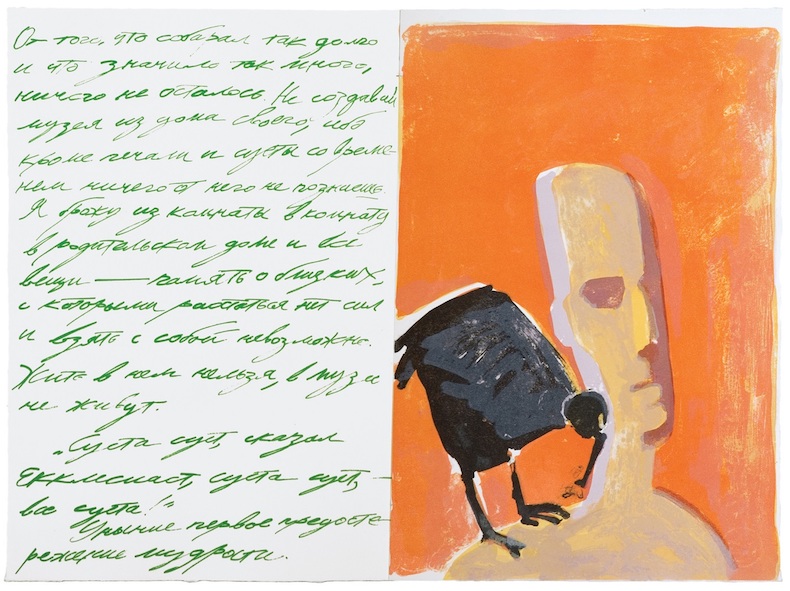 От того, что собирал так долго
и что значило так много,
ничего не осталось. Не создавай
музея из дома своего, ибо
кроме печали и суеты со време-
нем ничего от него не познаешь.
Я брожу из комнаты в комнату
в родительском доме и все
вещи — память о близких,
с которыми расстаться нет сил
и взять с собой невозможно.
Жить в нем нельзя, в музеи
не живут.
„Суета сует, сказал
Екклесиаст, суета сует, –
все суета!“
Уныние первое предосте-
режение мудрости.